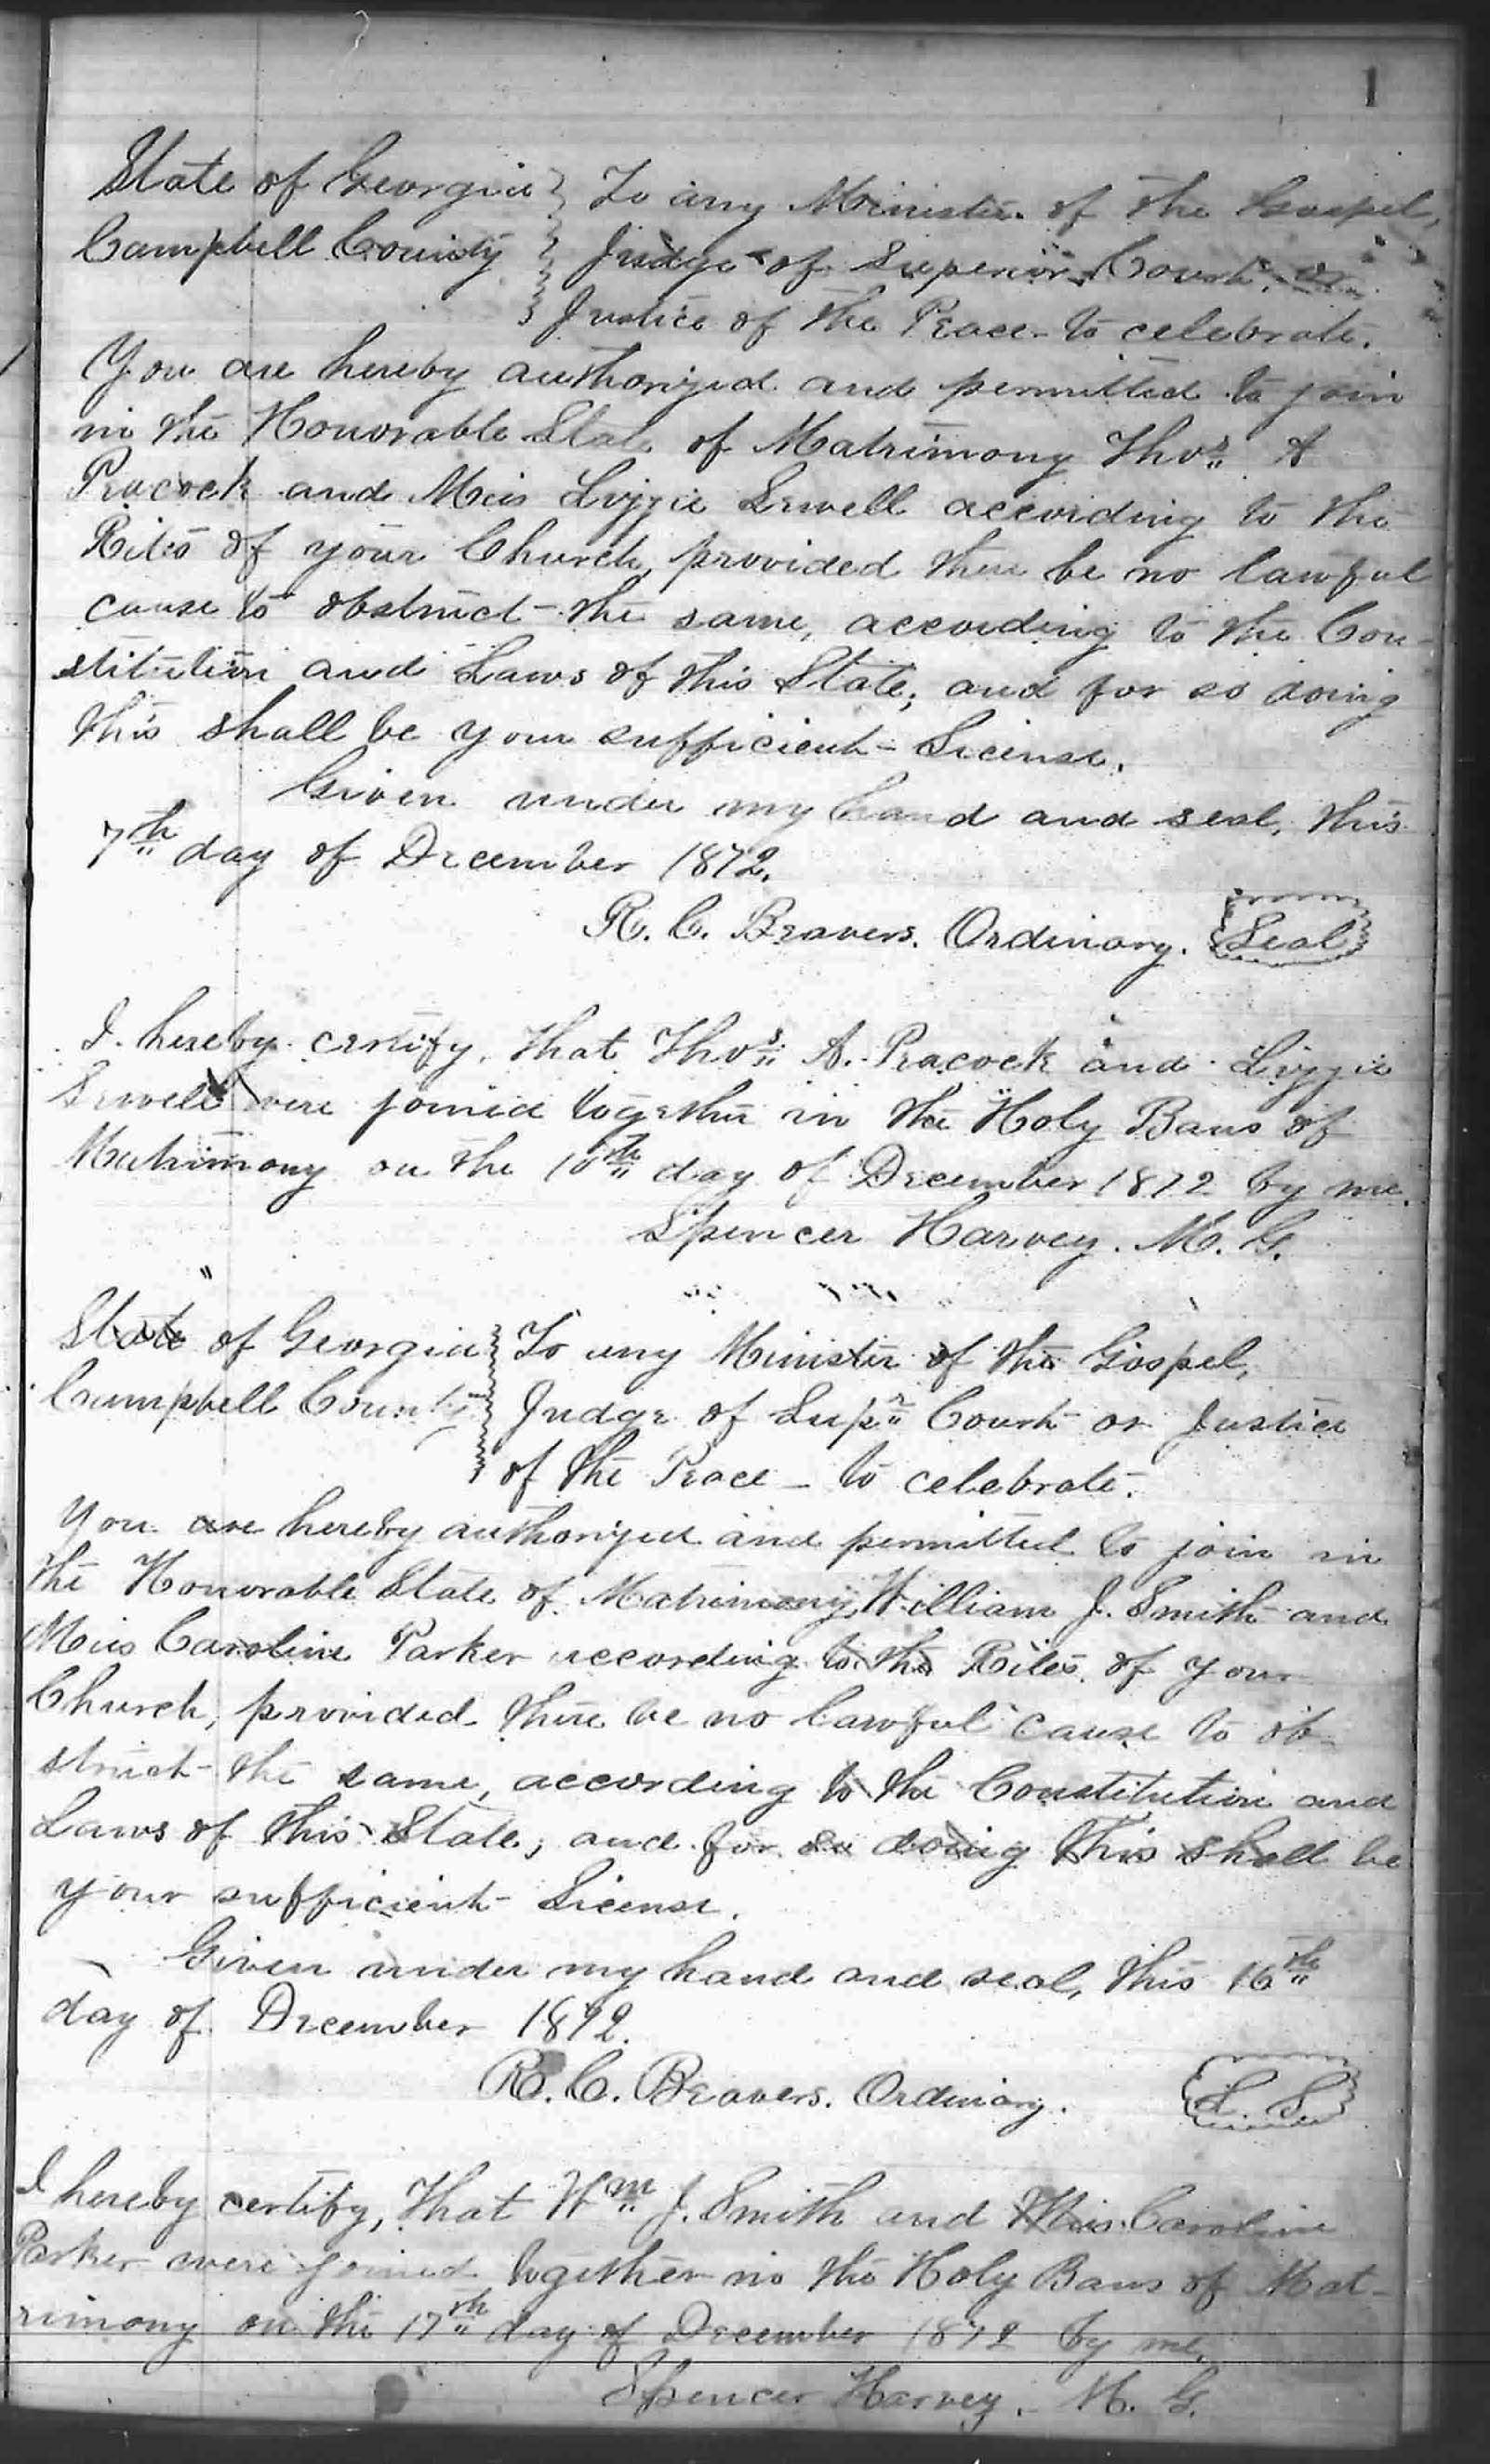 1
State of Georgia } To any Minister of the Gospel,
Campbell County } Judge of Superior Court, or
} Justice of the Peace - to celebrate.
You are hereby authorized and permitted to join
in the Honorable State of Matrimony Thos A
Peacock and Miss Lizzie Sewell according to the
Rites of your Church, provided there be no lawful
cause to obstruct the same, according to the Con-
stitution and Laws of this State; and for so doing
this shall be your sufficient License.
Given under my hand and seal, this
7th day of December 1872.
R. C. Beavers. Ordinary. Seal
I hereby certify, that Thos A. Peacock and Lizzie
Sewell were joined together in the Holy Bans of
Matrimony on the 10th day of December 1872 by me.
Spencer Harvey. M. G.
State of Georgia } To any Minister of the Gospel,
Campbell County } Judge of Supr Court or Justice
} of the Peace - to celebrate.
You are hereby authorized and permitted to join in
the Honorable State of Matrimony, William J. Smith and
Miss Caroline Parker according to the Rites of your
Church, provided there be no lawful cause to ob-
struct the same, according to the Constitution and
Laws of this State; and for so doing this shall be
your sufficient License.
Given under my hand and seal, this 16th
day of December 1872.
R. C. Beavers. Ordinary. L. S.
I hereby certify, that Wm J. Smith and Miss Caroline
Parker were joined together in the Holy Bans of Mat-
rimony on the 17th day of December 1872 by me.
Spencer Harvey. M. G.